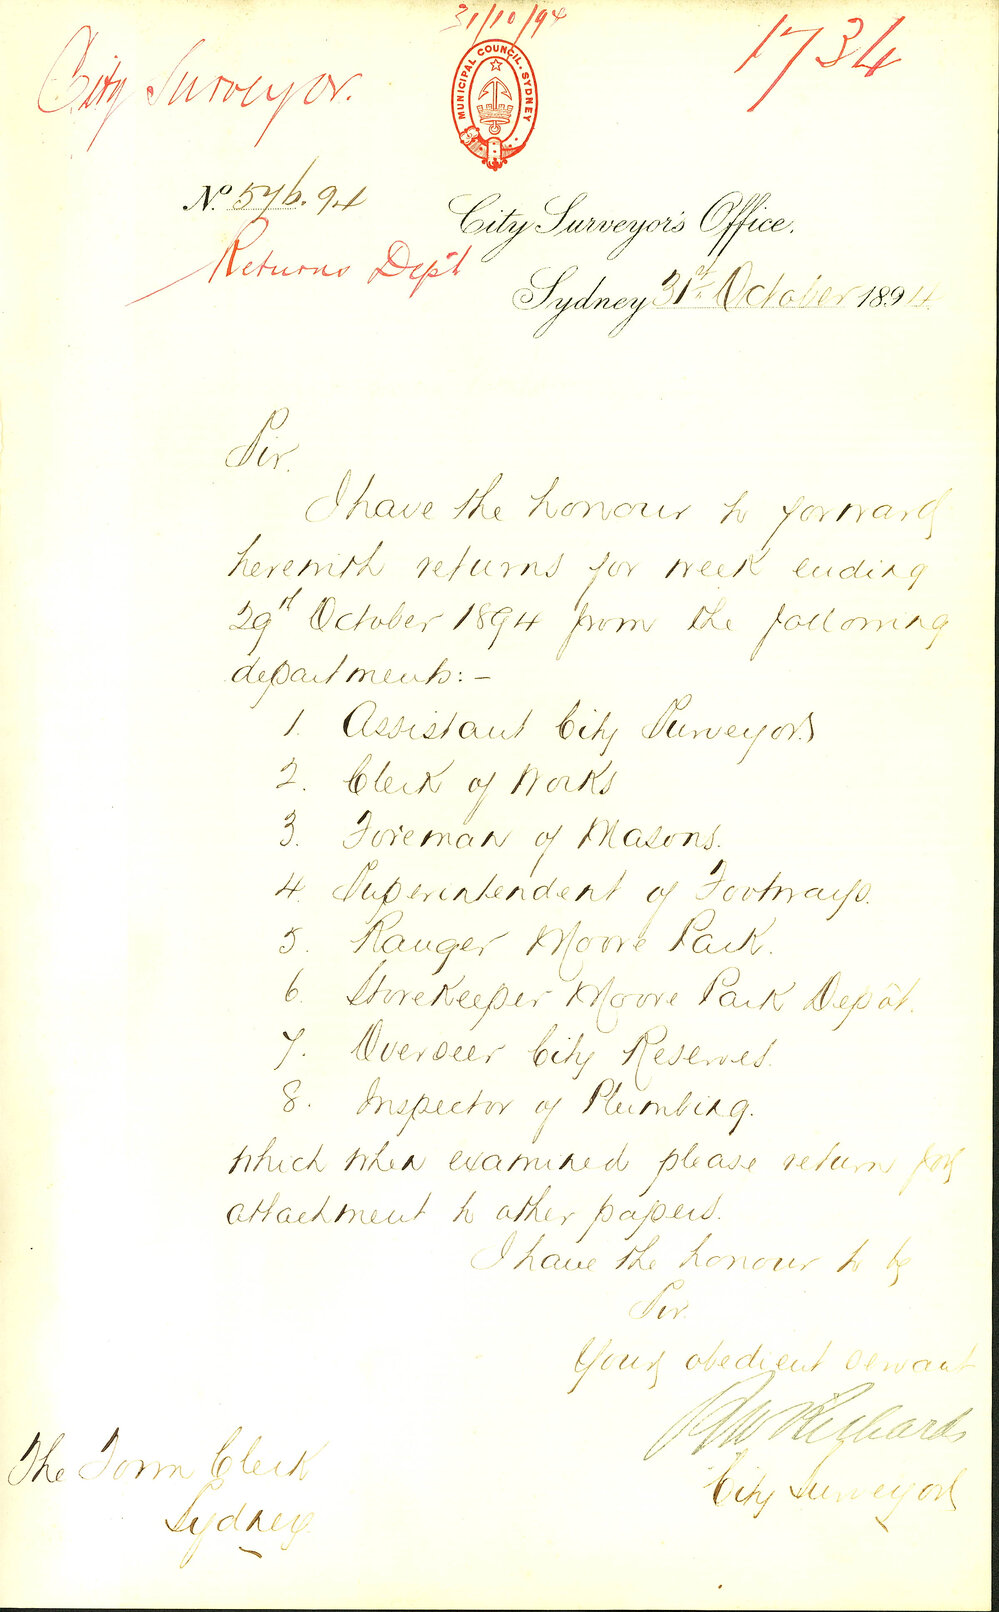 31/10/94
City Surveyor.
1734
MUNICIPAL COUNCIL. SYDNEY
No. 576.94
City Surveyor's Office.
Returns Dep't
Sydney 31st October 1894
Sir.
I have the honour to forward
herewith returns for week ending
29th October 1894 from the following
departments:-
1. Assistant City Surveyor
2. Clerk of Works
3. Foreman of Masons.
4. Superintendent of Footways.
5. Ranger Moore Park.
6. Storekeeper Moore Park Depôt.
7. Overseer City Reserves.
8. Inspector of Plumbing.
which when examined please return for
attachment to other papers.
I have the honour to be
Sir.
Your obedient servant
Richards
City Surveyor
The Town Clerk
Sydney